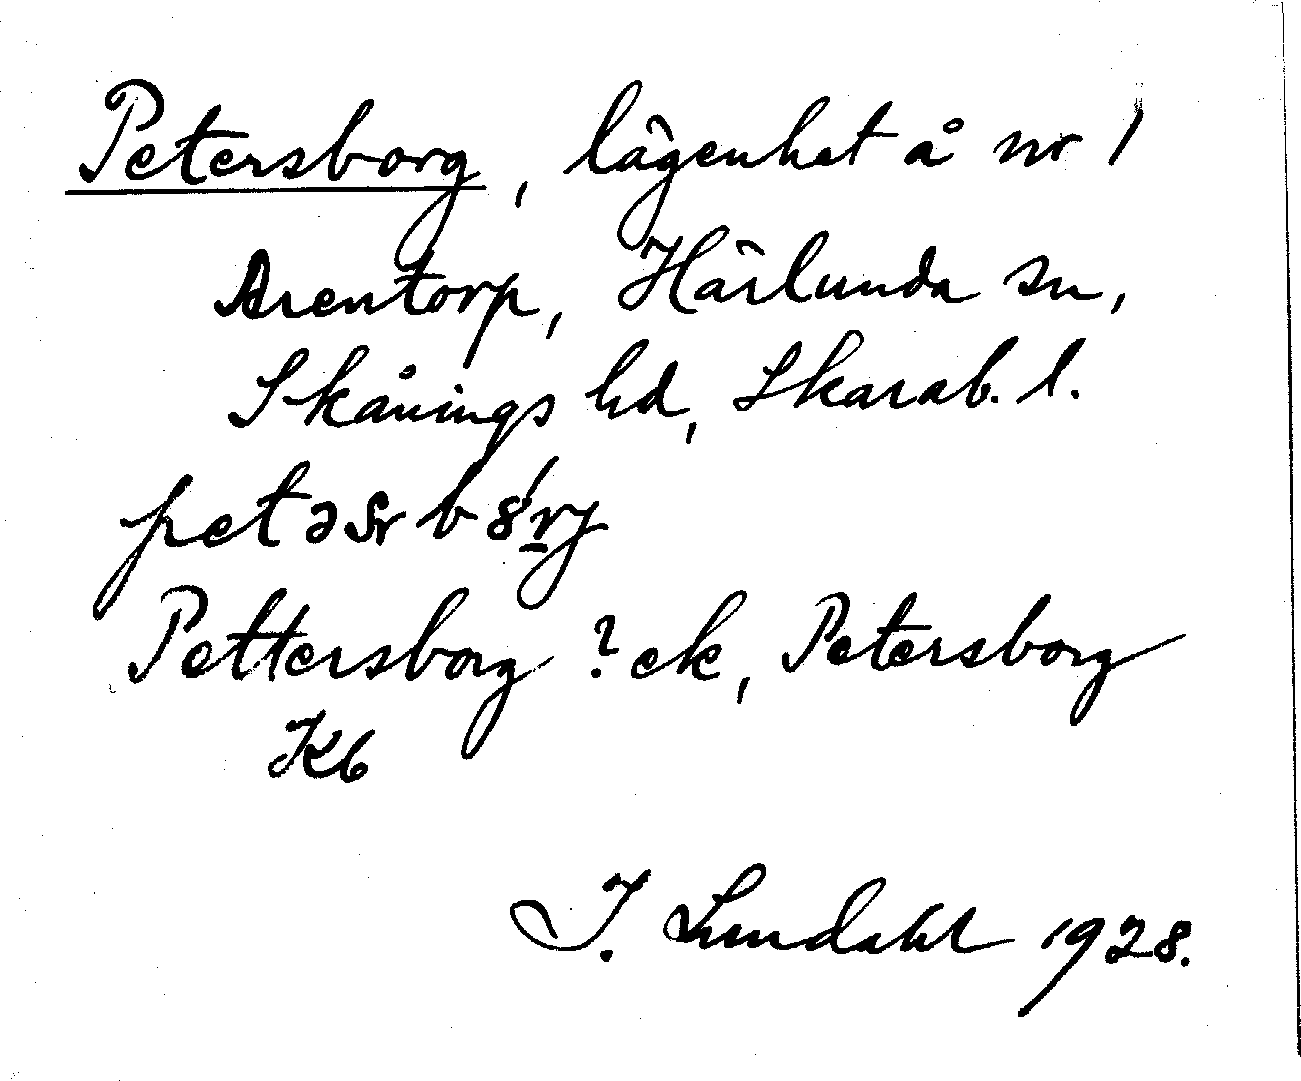 Petersborg, lägenhet å nr 1
Arentorp, Härlunda sn,
Skånings hd, Skarab. l.
Pettersborg ? ek, Petersborg
Kb
I. Lundahl 1928.